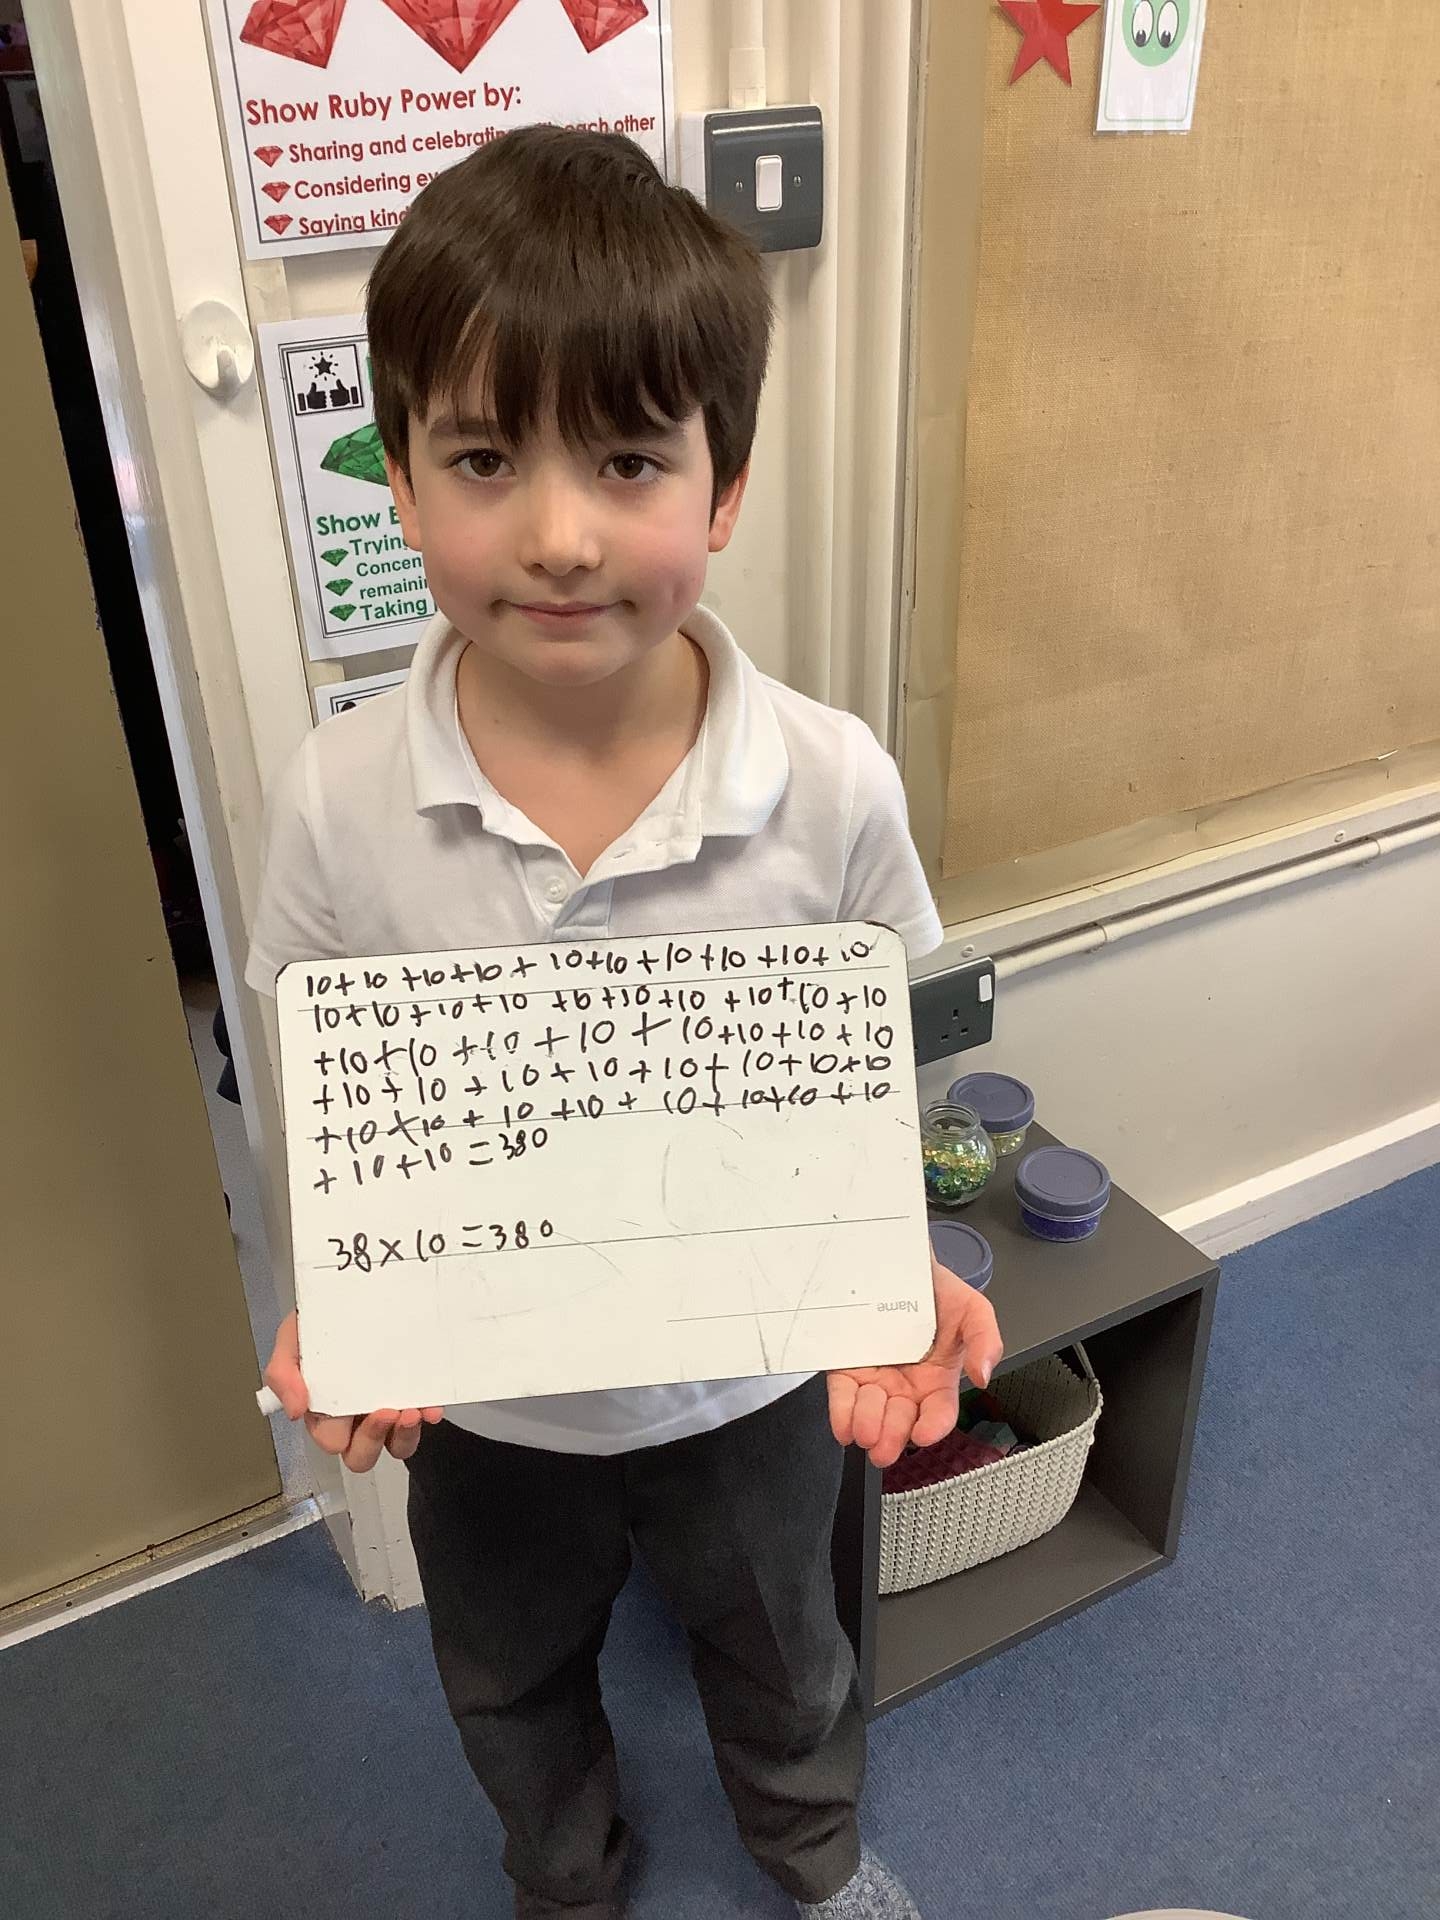 Show Ruby Power by:
Sharing and celebrating each other
Considering
Saying
Show
Trying
Taking
10+10+10+10+10+10+10+10+10+10
10+10+10+10+10+10+10+10+10+10
+10+10+10+10+10+10+10+10
+10+10+10+10+10+10+10+10
+10+10+10+10+10+10+10+10
+10+10=380
38×10=380
Name